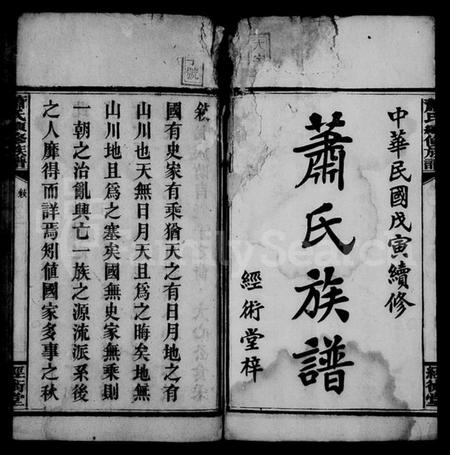 中華民國戊寅續修
蕭氏族譜
經術堂梓
敘
國有史家有乘猶天之有日月地之有
山川也天無日月天且爲之晦矣地無
山川地且爲之塞矣國無史家無乘則
一朝之治亂興亡一族之源流派系後
之人靡得而詳焉矧值國家多事之秋
蕭氏續修族譜
敘
經術堂
蕭氏續修族譜
經術堂
FamilySearch